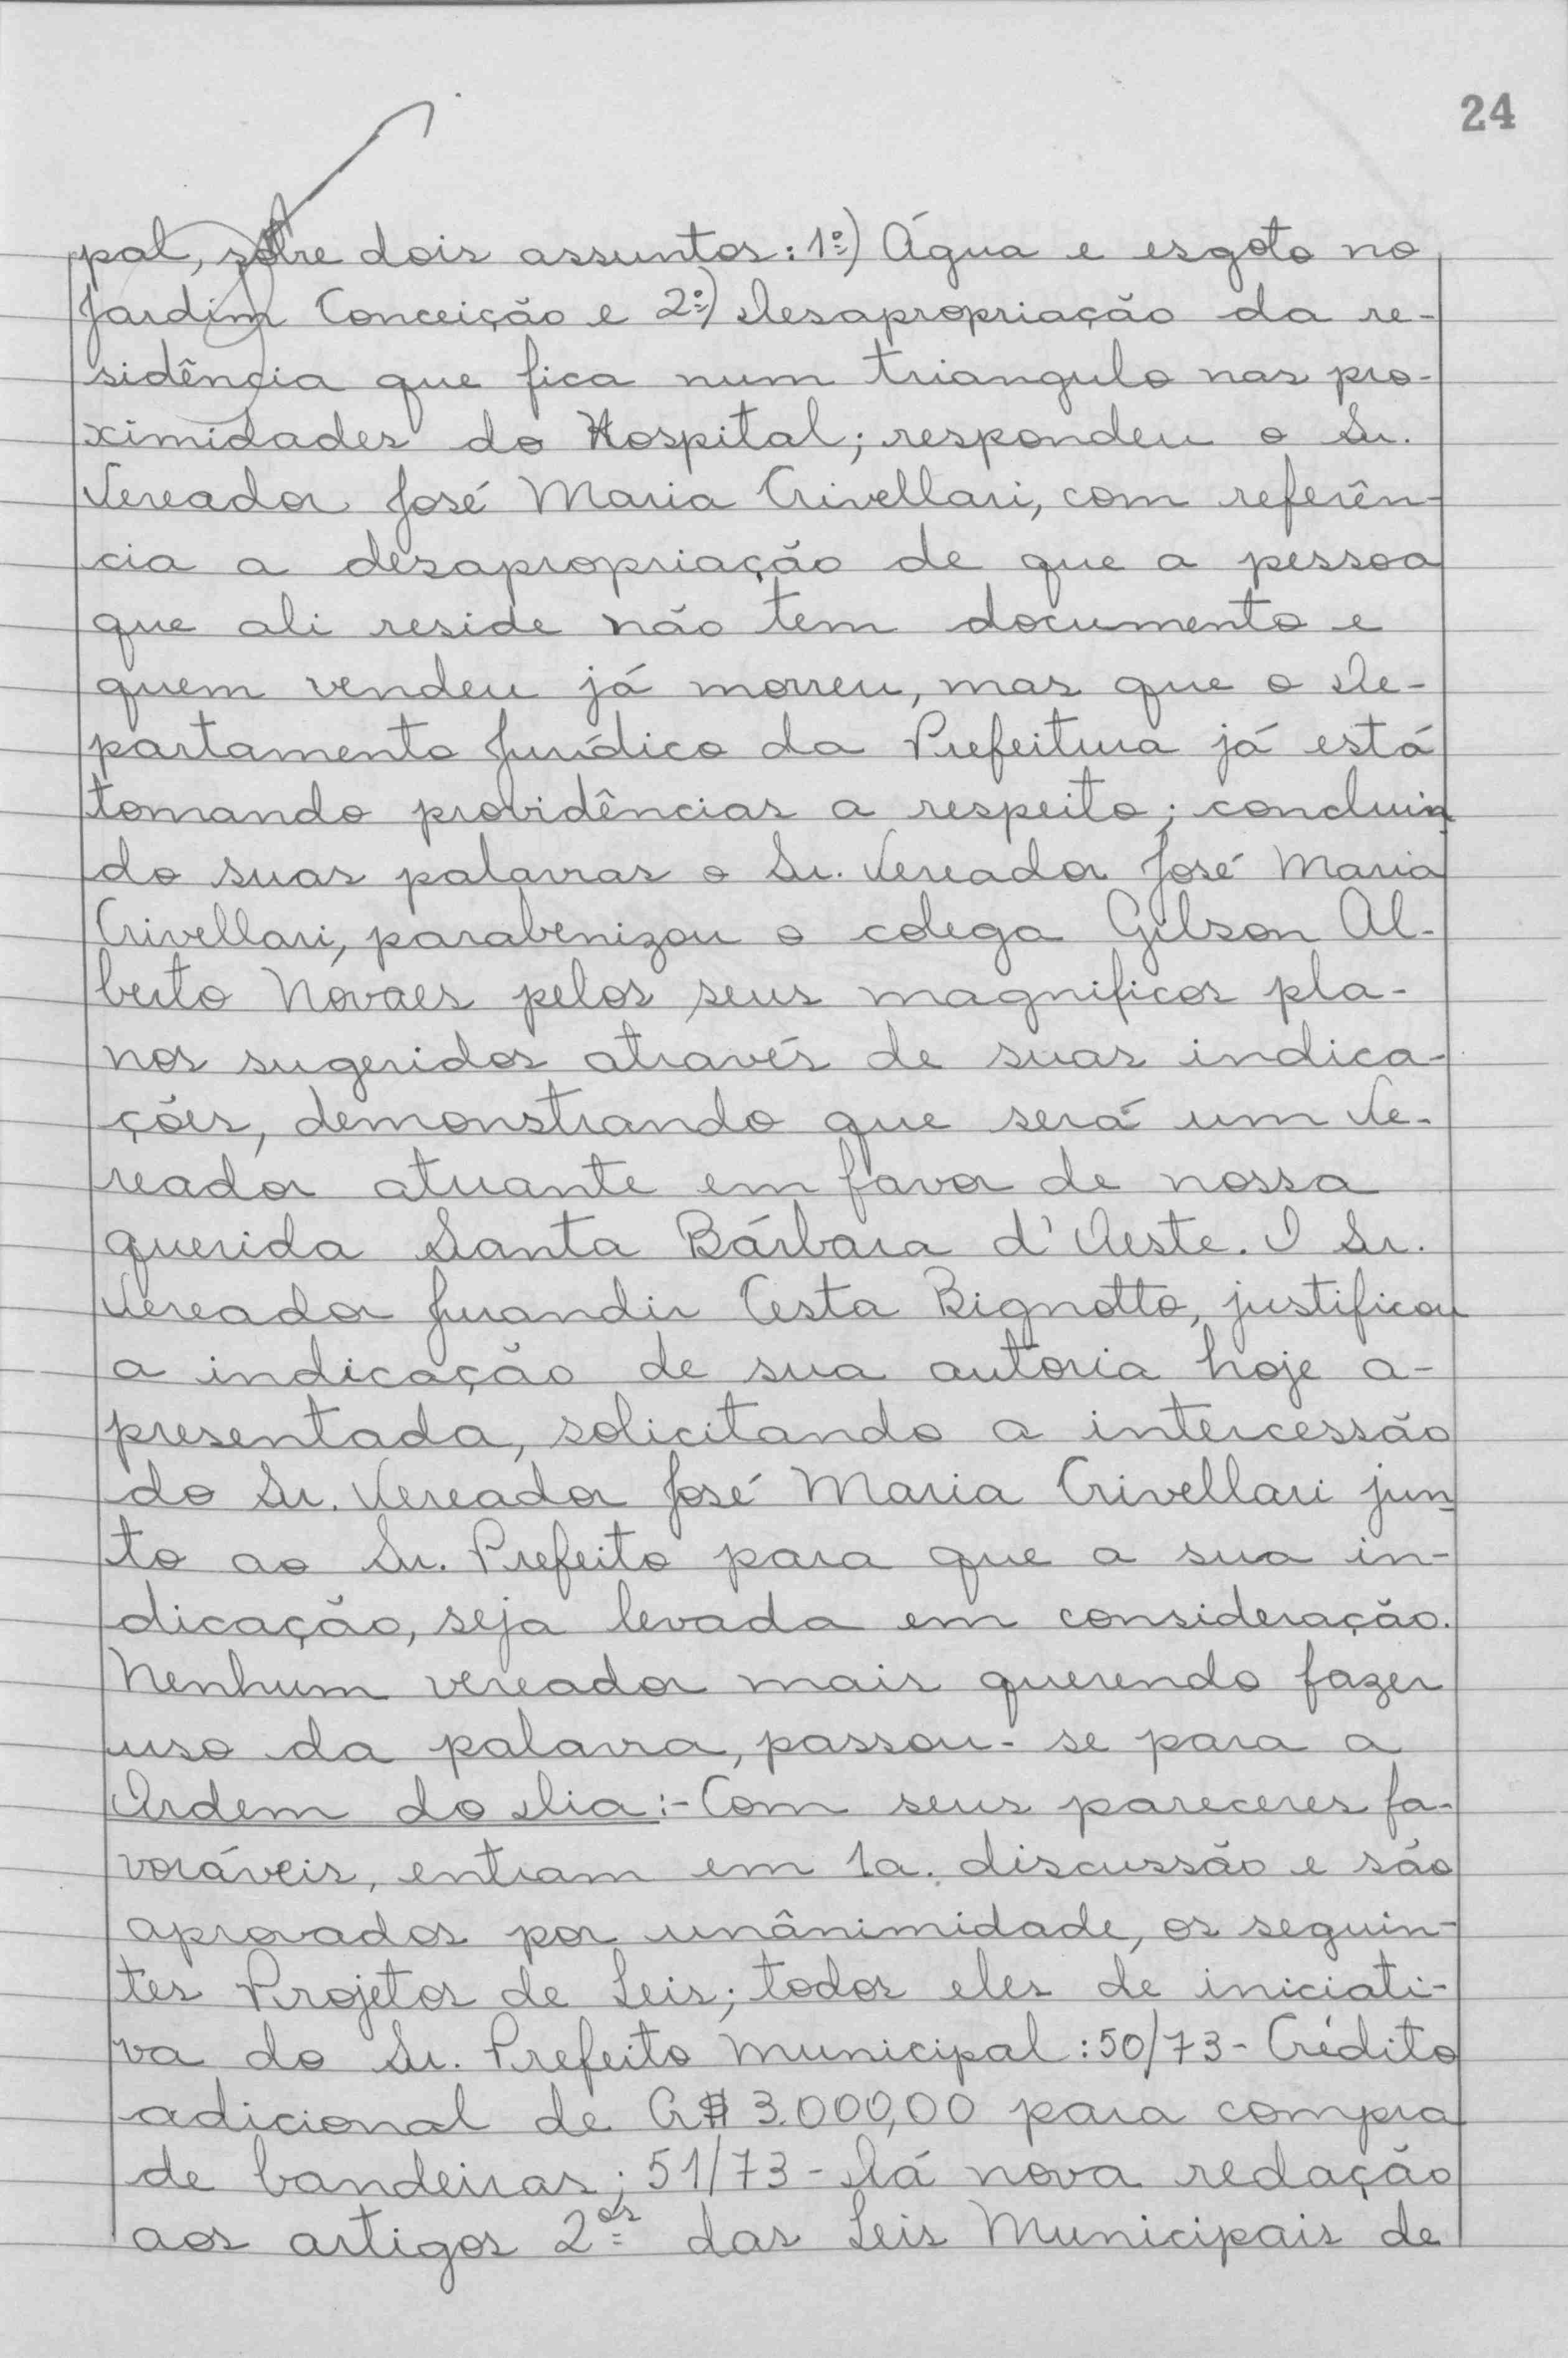 24
pal, sôbre dois assuntos: 1º) Água e esgoto no
Jardim Conceição e 2º) Desapropriação da re-
sidência que fica num triangulo nas pro-
ximidades do Hospital; respondeu o Sr.
Vereador José Maria Crivellari, com referên-
cia a desapropriação de que a pessoa
que ali reside não tem documento e
quem vendeu já morreu, mas que o De-
partamento Jurídico da Prefeitura já está
tomando providências a respeito; concluin
do suas palavras o Sr. Vereador José Maria
Crivellari, parabenizou o colega Gilson Al-
berto Novaes pelos seus magnificos pla-
nos sugeridos através de suas indica-
ções, demonstrando que será um Ve-
reador atuante em favor de nossa
querida Santa Bárbara d'Oeste. O Sr.
Vereador Jurandir Cesta Bignotto, justificou
a indicação de sua autoria hoje a-
presentada, solicitando a intercessão
do Sr. Vereador José Maria Crivellari jun
to ao Sr. Prefeito para que a sua in-
dicação, seja levada em consideração.
Nenhum vereador mais querendo fazer
uso da palavra, passou-se para a
Ordem do Dia:- Com seus pareceres fa-
voráveis, entram em 1a. discussão e são
aprovados por unânimidade, os seguin-
tes Projetos de Leis; todos eles de iniciati-
va do Sr. Prefeito Municipal: 50/73 - Crédito
adicional de Cr$ 3.000,00 para compra
de bandeiras; 51/73 - Dá nova redação
aos artigos 2ºs das Leis Municipais de